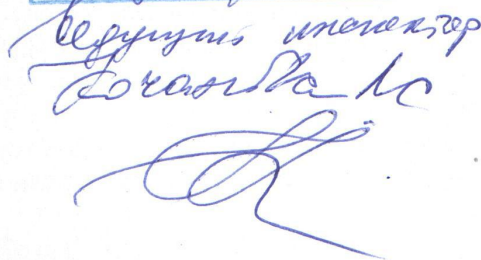 Ведущий инспектор
Кочанова ЛС